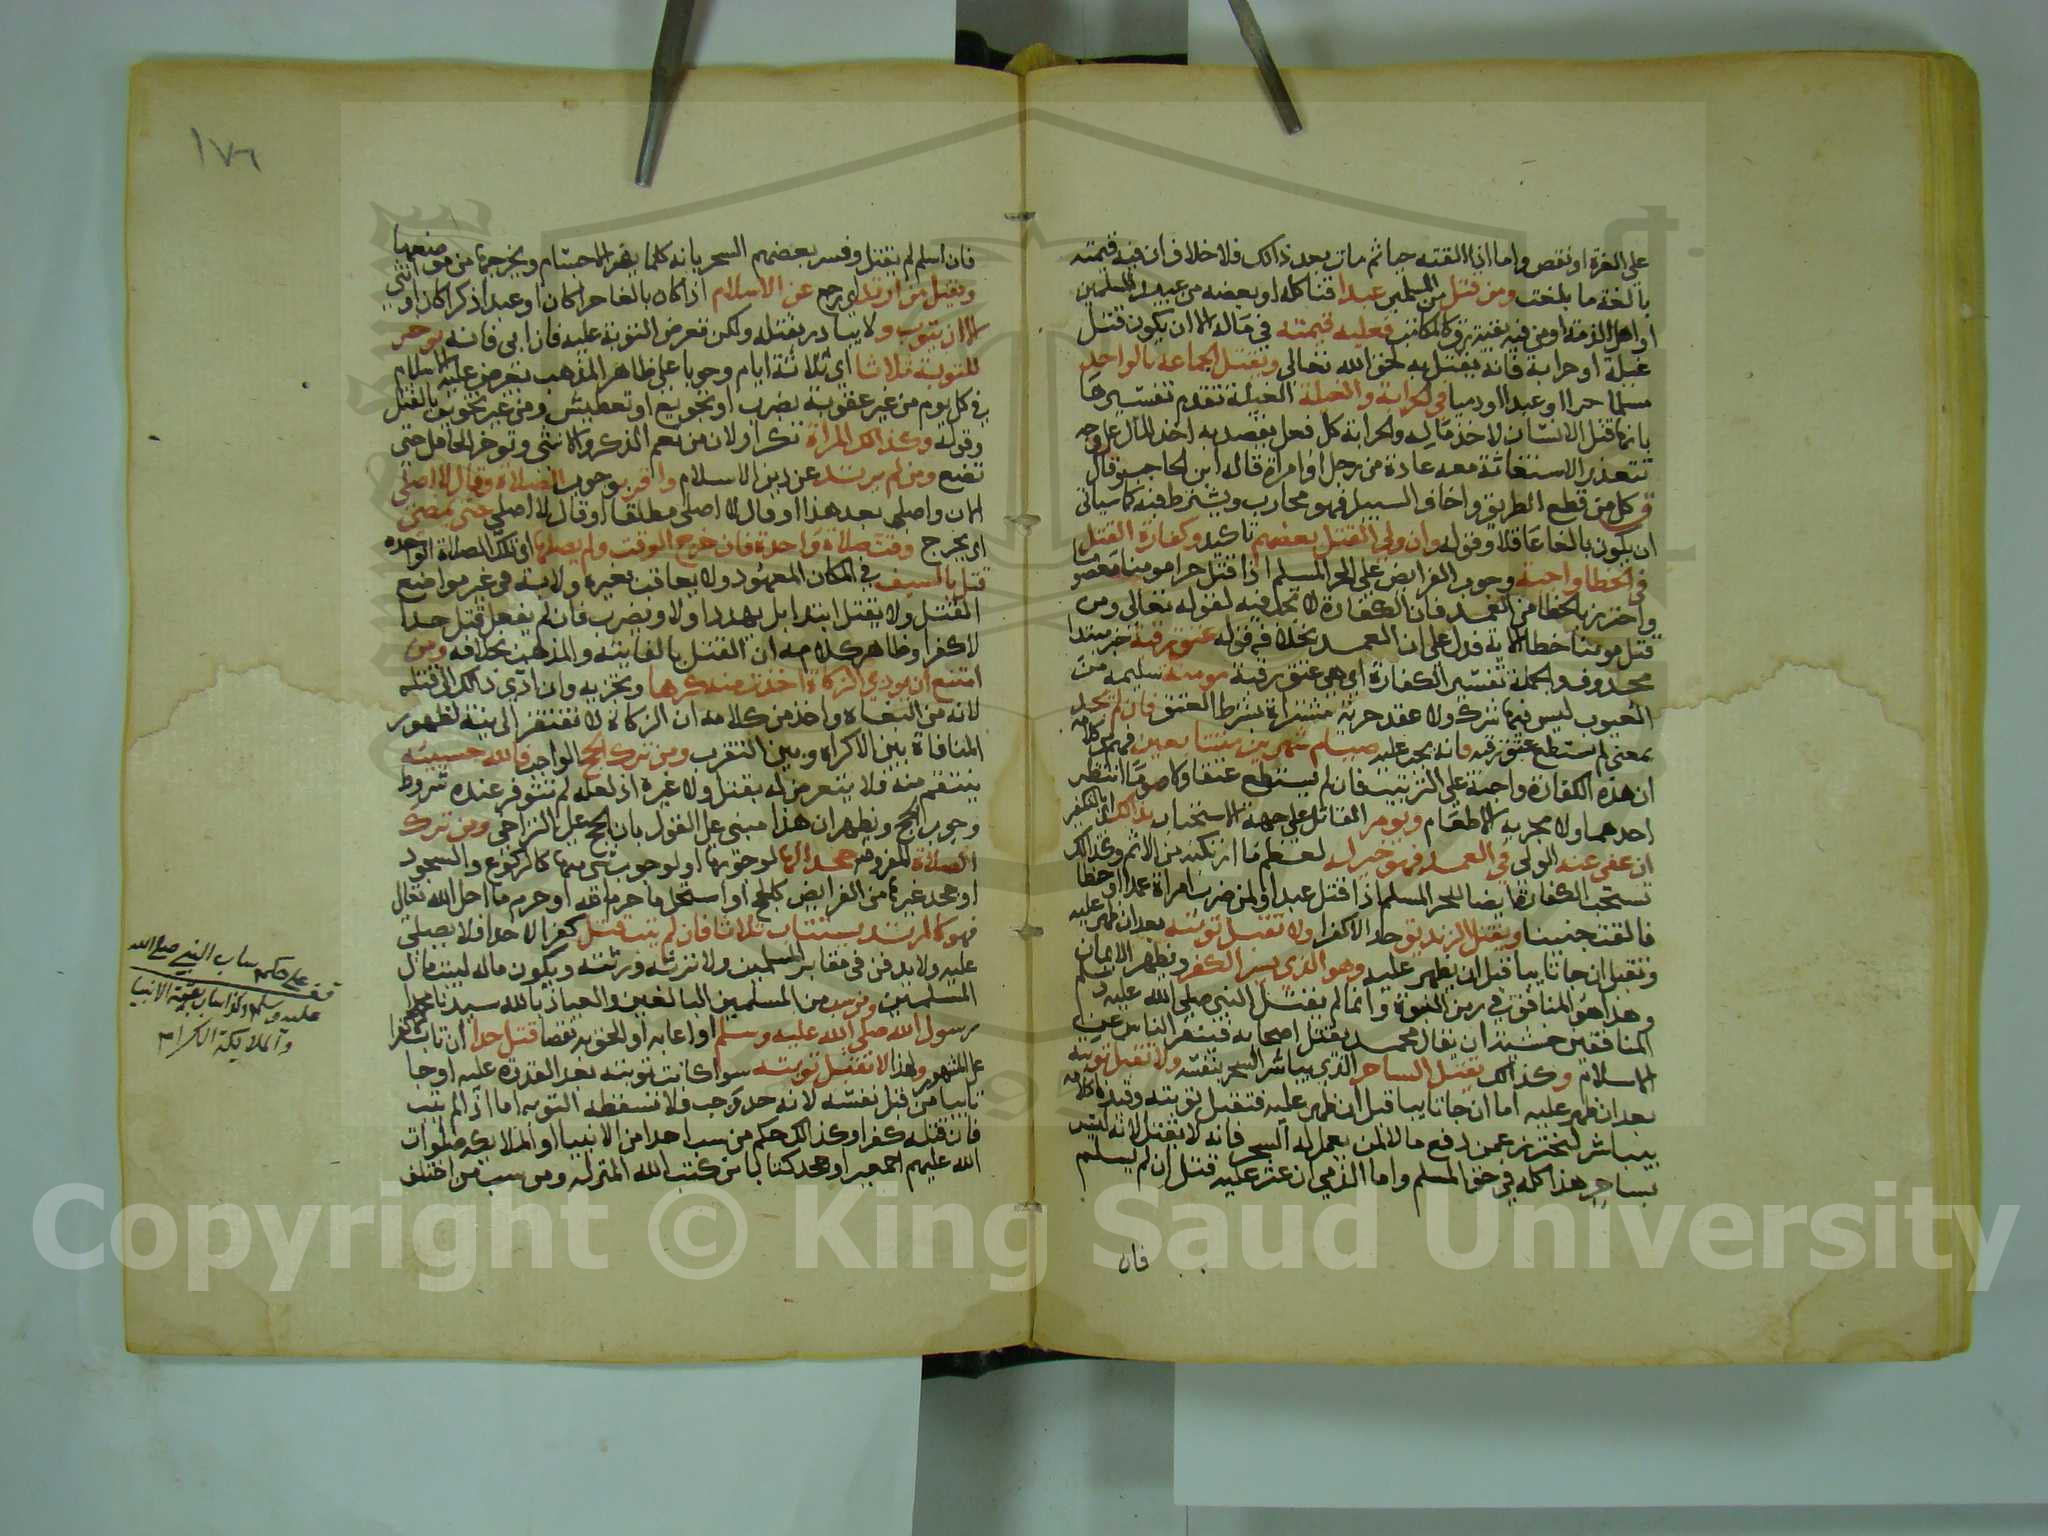 على الغرة او نقص واما اذا القته حيا ثم مات بعد ذالك فلا خلاف ان فيه قيمته
بالغة ما بلغت ومن قتل من المسلمين عبدا قنا كله او بعضه من عبيد المسلمين
او اهل الذمة او من فيه بقية رق كالمكاتب فعليه قيمته في ماله الا ان يكون قتل
غيلة او حرابة فانه يقتل به لحق الله تعالى وتقتل الجماعة بالواحد
مسلما حرا او عبدا او ذميا في الحرابة والغيلة الغيلة تقدم تفسيرها
بانها قتل الانسان لاخذ ماله والحرابة كل فعل يقصد به اخذ المال على وجه
تتعذر الاستغاثة معه عادة من رجل او امراة قاله ابن الحاجب وقال
كل من قطع الطريق واخاف السبيل فهو محارب ويشترط فيه كما سياتي
ان يكون بالغا عاقلا وقوله وان ولي القتل بعضهم تاكيد وكفارة القتل
في الخطا واجبة وجوب الفرايض على الحر المسلم اذا قتل حرا مومنا معصوما
واحترز بالخطا من العمد فان الكفارة لا تجب فيه لقوله تعالى ومن
قتل مومنا خطا الاية فدل على ان العمد بخلافه قوله عتق رقبة خبر مبتدا
محذوف والجملة تفسير الكفارة اي هي عتق رقبة مومنة سليمة من
العيوب ليس فيها شرك ولا عقد حرية مشتراة بشرط العتق فان لم يجد
بمعنى لم يستطع عتق رقبة فانه يجب عليه صيام شهرين متتابعين فهم من كلامه
ان هذه الكفارة واجبة على الترتيب فان لم يستطع عتقا ولا صوما انتظر
احدهما ولا يجزيه الاطعام ويومر القاتل على جهة الاستحباب بذالك اي التكفير
ان عفي عنه الولي في العمد فهو خير له لعظم ما ارتكبه من الاثم وكذالك
تستحب الكفارة ايضا للحر المسلم اذا قتل عبدا ولمن ضرب امراة عمدا او خطا
فالقت جنينا ويقتل الزنديق حدا لا كفرا ولا تقبل توبته بعد ان ظهر عليه
وتقبل ان جا تايبا قبل ان يظهر عليه وهو الذي يسر الكفر ويظهر الايمان
وهذا هو المنافق في زمن النبوة وانما لم يقتل النبي صلى الله عليه وسلم
المنافقين خشية ان يقال محمد يقتل اصحابه فتنفر الناس عن
الاسلام وكذالك يقتل الساحر الذي يباشر السحر بنفسه ولا تقبل توبته
بعد ان ظهر عليه اما ان جا تايبا قبل ان ظهر عليه فتقبل توبته وقيدنا كلامه
بيباشر لنحترز عمن دفع مالا لمن يعمل له السحر فانه لا يقتل لانه ليس
بساحر هذا كله في حق المسلم واما الذمي ان عثر عليه قتل ان لم يسلم
فان
١٧٦
فان اسلم لم يقتل وفسر بعضهم السحر بانه كلما يغير الاجسام ويخرجها عن موضعها
ويقتل من ارتد اي رجع عن الاسلام اذا كان بالغا حرا كان او عبدا ذكرا كان او انثى
الا ان يتوب ولا يبادر بقتله ولكن تعرض التوبة عليه فان ابى فانه يوخر
للتوبة ثلاثا اي ثلاثة ايام وجوبا على ظاهر المذهب يعرض عليه الاسلام
في كل يوم من غير عقوبة بضرب او تجويع او تعطيش ومن غير تخويف بالقتل
وقوله وكذالك المراة تكرار لان من يعم الذكر والانثى وتوخر الحامل حتى
تضع ومن لم يرتد عن دين الاسلام واقر بوجوب الصلاة وقال لا اصلي
الان واصلي بعد هذا او قال لا اصلي مطلقا او قال لا اصلي حتى مضى
اي يخرج وقت صلاة واحدة فان خرج الوقت ولم يصلها اي تلك الصلاة الواحدة
قتل بالسيف في المكان المعهود ولا يعاقب بغيره ولا به في غير مواضع
القتل ولا يقتل ابتدا بل يهدد اولا ويضرب فان لم يفعل قتل حدا
لا كفرا وظاهر كلامه ان القتل بالفايتة والمذهب بخلافه ومن
امتنع ان يودي الزكاة اخذت منه كرها وتجزيه وان ادى ذالك الى قتله
لانه من البغاة واخذ من كلامه ان الزكاة لا تفتقر الى نية لظهور
المنافاة بين الاكراه وبين التقرب ومن ترك الحج الواجب فالله حسيبه
ينتقم منه فلا يتعرض له بقتل ولا غيره اذ لعله لم تتوفر عنده شروط
وجوب الحج ويظهر ان هذا مبني على القول بان الحج على التراخي ومن ترك
الصلاة المفروضة جحدا لها لوجوبها او لوجوب شي منها كالركوع والسجود
او جحد غيرها من الفرايض كالحج او استحل ما حرم الله او حرم ما احل الله تعالى
فهو كالمرتد يستتاب ثلاثا فان لم يتب قتل كفرا لا حدا فلا يصلى
عليه ولا يدفن في مقابر المسلمين ولا ترثه ورثته ويكون ماله لبيت مال
المسلمين ومن سب من المسلمين البالغين والعياذ بالله سيدنا محمدا
رسول الله صلى الله عليه وسلم او اعابه او الحق به نقصا قتل حدا ان تاب لا كفرا
على المشهور ولهذا لا تقبل توبته سوا كانت توبته بعد القدرة عليه او جا
تايبا من قبل نفسه لانه حد وجب فلا تسقطه التوبه اما اذا لم يتب
فان قتله كفرا وكذالك حكم من سب احدا من الانبيا او الملايكه صلوات
الله عليهم اجمعين او جحد كتابا من كتب الله المنزله ومن سب من اختلف
قف على حكم ساب النبي صلى الله
عليه وسلم وكذا ساب بقية الانبيا
والملايكة الكرام
Copyright © King Saud University